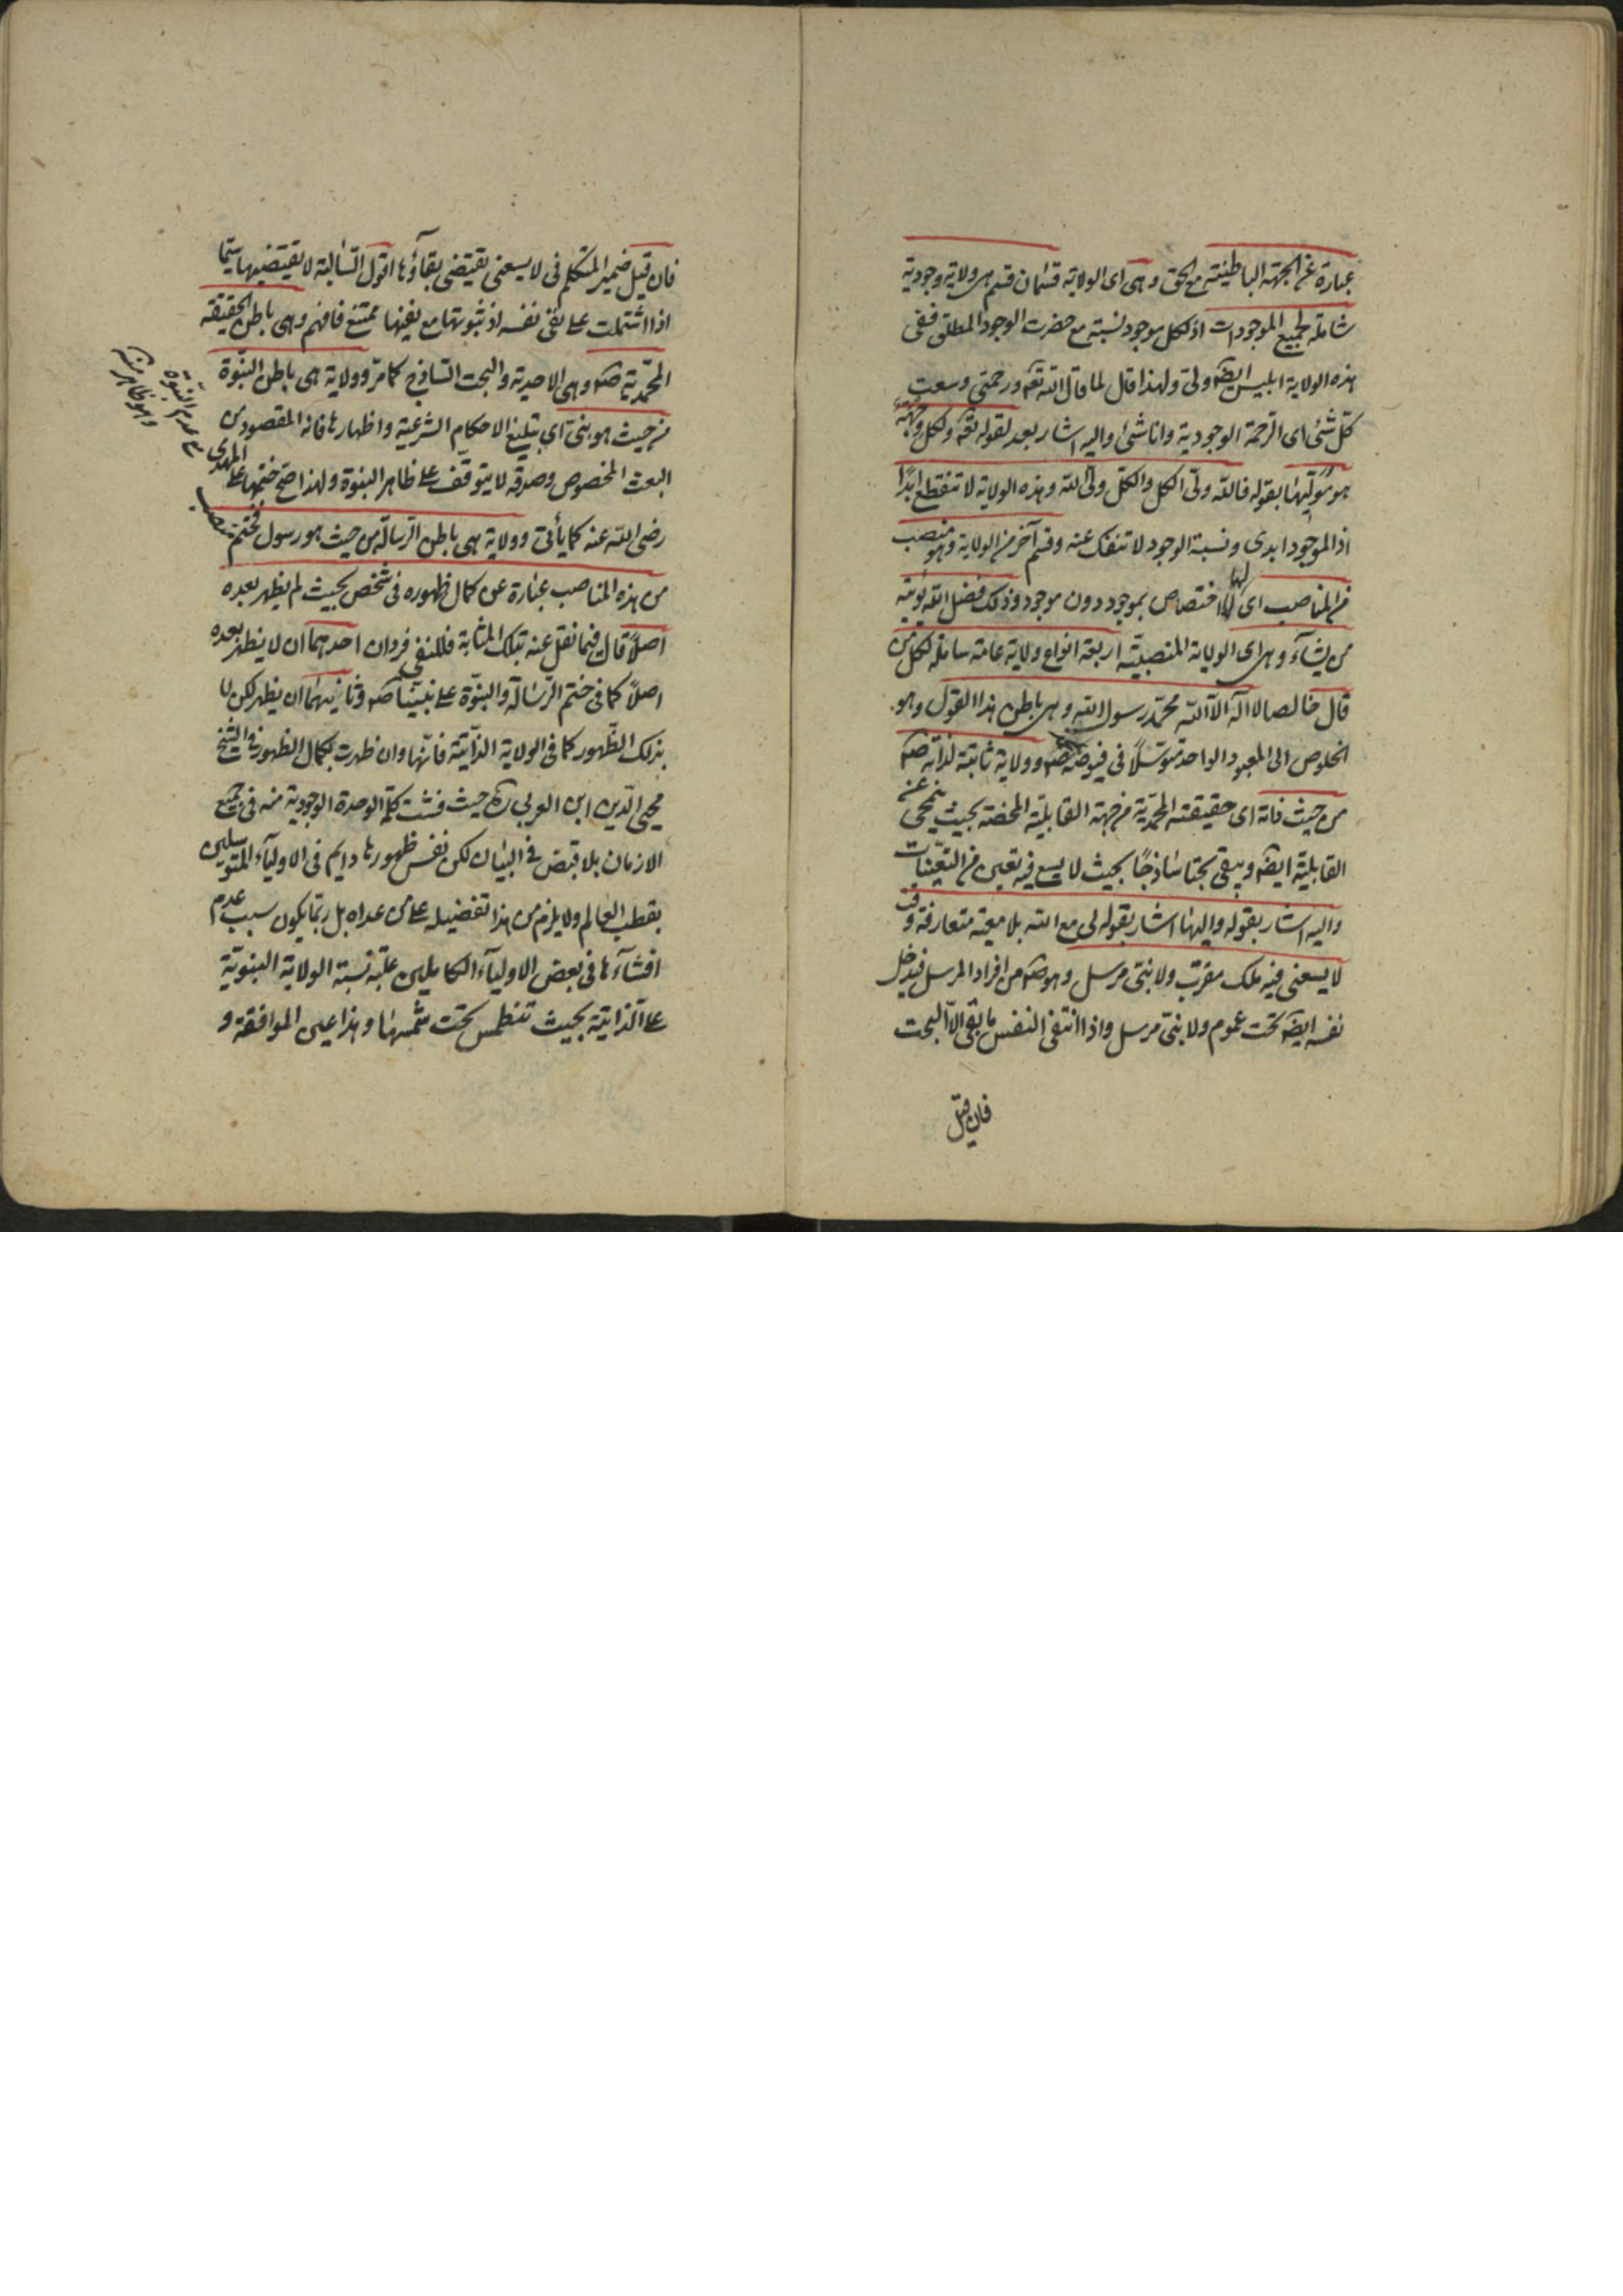 عبارة عن الجهة الباطنية مع الحق وهى اى الولاية قسمان قسم هى ولاية وجودية
شاملة لجميع الموجودات اذ لكل موجود نسبة مع حضرت الوجود المطلق ففى
هذه الولاية ابليس ايضه ولى ولهذا قال لما قال الله تعه ورحمتى وسعت
كل شئ اى الرحمة الوجودية وانا شئ واليه اشار بعد بقوله تعه ولكل وجهة
هو موليها بقوله فالله ولى الكل والكل ولى الله وهذه الولاية لا تنقطع ابدًا
اذ الموجود ابدى ونسبة الوجود لا تنفك عنه وقسم آخر من الولاية وهو منصب
من المناصب اى لها اختصاص بموجود دون موجود وذلك فضل الله يؤتيه
من يشآء وهى اى الولاية المنصبية اربعة انواع ولاية عامة شاملة لكل من
قال خالصا لا اله الا الله محمد رسول الله وهى باطن هذا القول وهو
الخلوص الى المعبود الواحد متوسلاً فى فيوضه صم وولاية ثابتة لذاته صم
من حيث ذاته اى حقيقته المحمدية من جهة القابلية المحضة بحيث ينمحى عنه
القابلية ايضه ويبقى بحتا ساذجًا بحيث لا يسع فيه تعين من التعينات
واليه اشار بقوله واليها اشار بقوله لى مع الله بلا معية متعارفة وقت
لا يسعنى فيه ملك مقرب ولا نبى مرسل وهو صم من افراد المرسل فيدخل
نفسه ايضه تحت عموم ولا نبى مرسل واذا انتفى النفس ما بقى الا البحت
فان قيل
فان قيل ضمير المتكلم فى لا يسعنى يقتضى بقآؤها اقول السالبة لا تقتضيها سيما
اذا اشتملت على نفى نفسه اذ ثبوتها مع نفيها ممتنع فافهم وهى باطن الحقيقة
المحمدية صم وهى الاحدية والبحت الساذج كما مر وولاية هى باطن النبوة
من حيث هو نبى اى تبليغ الاحكام الشرعية واظهارها فانه المقصود من
البعث المخصوص وصدقه لا يتوقف على ظاهر النبوة ولهذا صح ختمها على المهدى
مع عدم النبوة
وهو ظاهر منه
رضى الله عنه كما يأتى وولاية هى باطن الرسالة من حيث هو رسول فختم منصب
من هذه المناصب عبارة عن كمال ظهوره فى شخص بحيث لم يظهر بعده
اصلاً قال فيما نقل عنه بتلك المثابة فللنفى فردان احدهما ان لا يظهر بعده
اصلاً كما فى ختم الرسالة والنبوة على نبينا صم وثانيهما ان يظهر لكن لا
بذلك الظهور كما فى الولاية الذاتية فانها وان ظهرت بكمال الظهور فى الشيخ
محيى الدين ابن العربى رضه حيث فشت كلمة الوحدة الوجودية منه فى جميع
الازمان بلا قبض فى البيان لكن نفس ظهورها دايم فى الاوليآء المتوسلين
بقطب العالم ولا يلزم من هذا تفضيله على من عداه بل ربما يكون سبب عدم
افشآءها فى بعض الاوليآء الكاملين غلبة نسبة الولاية النبوية
على الذاتية بحيث تنطمس تحت شمسها وهذا عين الموافقة و